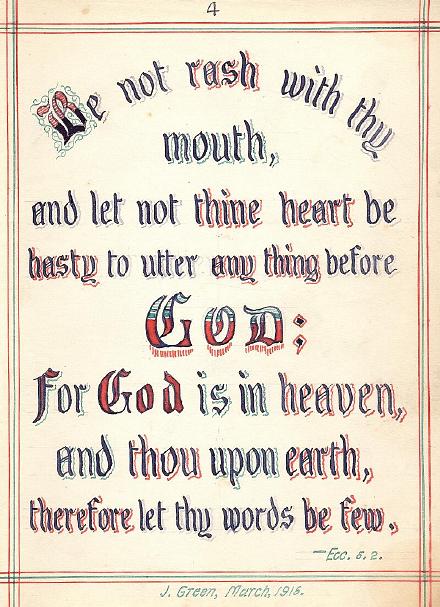 4
Be not rash with thy
mouth,
and let not thine heart be
hasty to utter any thing before
GOD:
For God is in heaven,
and thou upon earth,
therefore let thy words be few.
—Ecc. 5. 2.
J. Green, March, 1915.